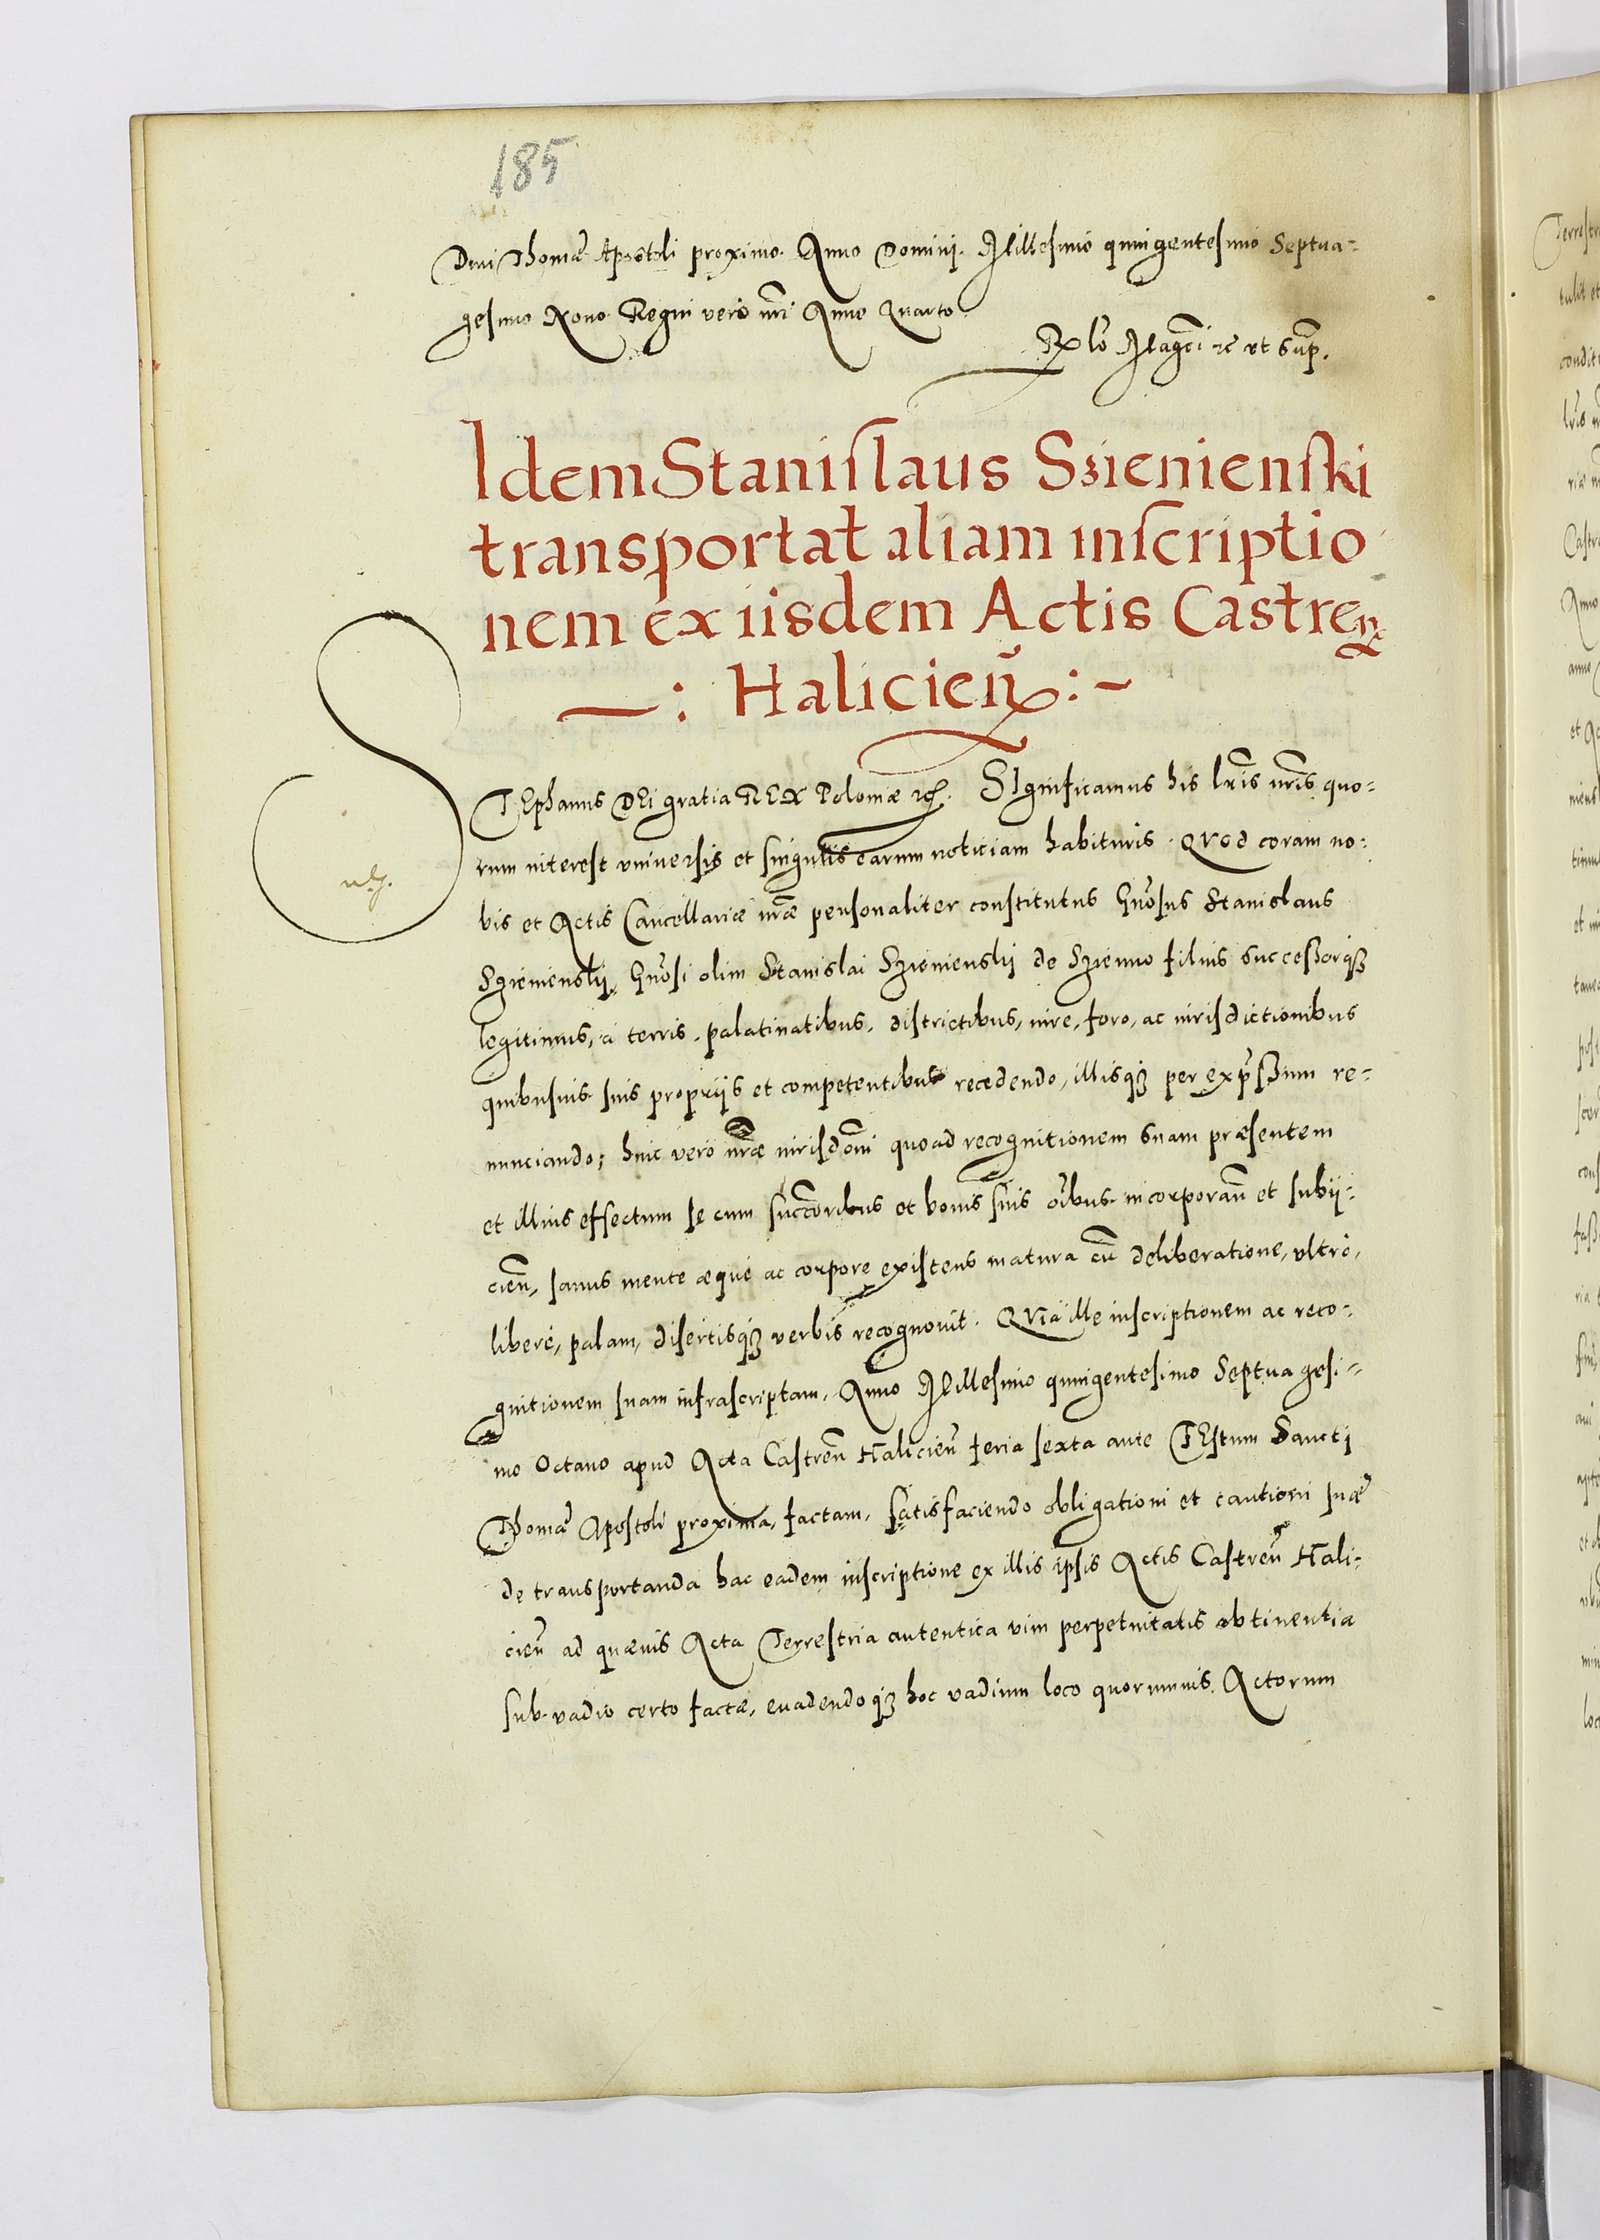 185
Diui Thomæ Apostoli proximo. Anno Domini. Millesimo quingentesimo Septua-
gesimo Nono. Regni vero nr̃i Anno Quarto.
Rlõ Mag̃ci rc̃ ut sup̃.
Idem Stanislaus Szienienski
transportat aliam inscriptio
nem ex iisdem Actis Castreñ
—: Halicieñ :-
STEphanus DEi gratia REX Poloniæ etc. SIgnificamus his lr̃is nr̃is quo-
rum interest vniuersis et singulis earum noticiam habituris. QVod coram no-
bis et Actis Cancellariæ nr̃æ personaliter constitutus Gñosus Stanislaus
Szienienskij, Gñosi olim Stanislai Szienienskij de Szienno filius successorq3
legitimus, a terris, palatinatibus, districtibus, iure, foro, ac iurisdictionibus
quibusuis suis proprijs et competentibus recedendo, illisq3 per exp̃ssum re-
nunciando; huic vero nr̃æ iurisdõni quoad recognitionem suam præsentem
et illius effectum se cum succ̃oribus et bonis suis oĩbus incorporañ et subij-
cieñ, sanus mente æque ac corpore existens matura cũ deliberatione, vltro,
libere, palam, disertisq3 verbis recognouit. QVia ille inscriptionem ac reco-
gnitionem suam infrascriptam, Anno Millesimo quingentesimo Septuagesi-
mo Octauo apud Acta Castreñ Halicieñ feria sexta ante FEstum Sancti
Thomæ Apostoli proxima, factam, satisfaciendo obligationi et cautioni suæ
de transportanda hac eadem inscriptione ex illis ipsis Actis Castreñ Hali-
cieñ ad quæuis Acta Terrestria autentica vim perpetuitatis obtinentia
sub vadio certo factæ, euadendoq3 hoc vadium loco quorumuis Actorum